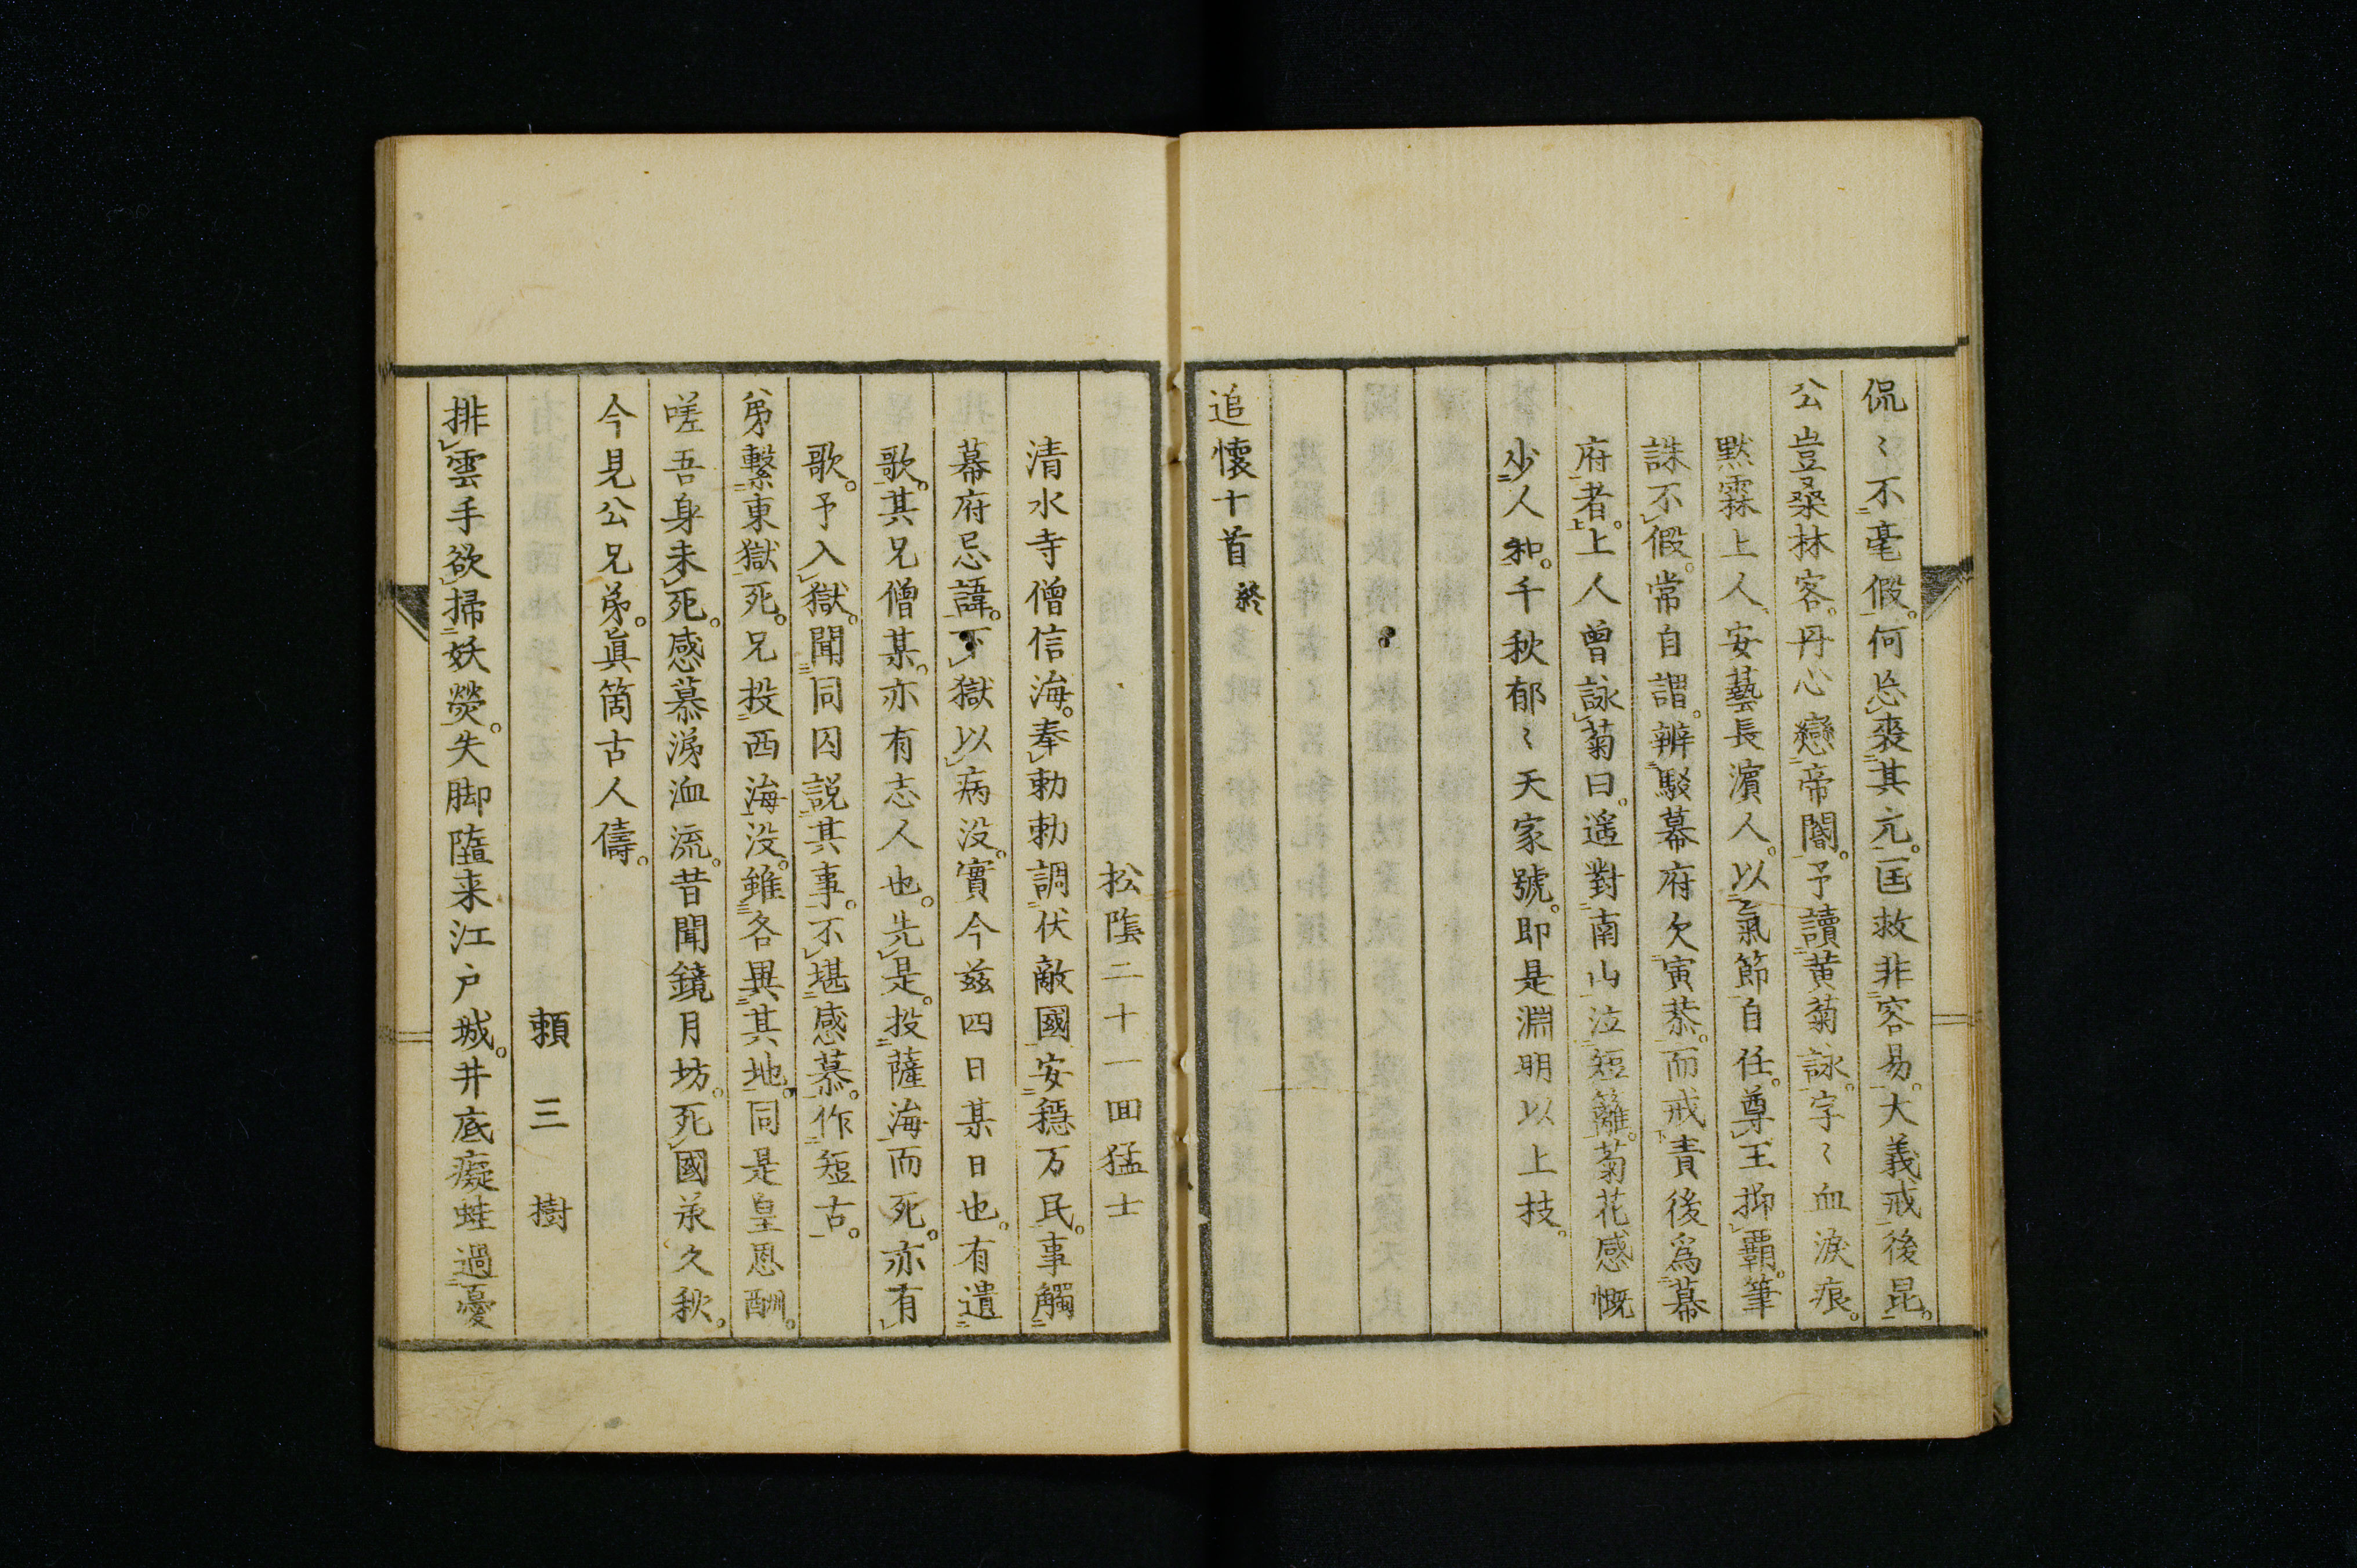 侃〻不毫假。何忘喪其元。匡救非容易。大義戒後昆。
公豈桑林客。丹心戀帝閽。予讀黄菊詠。字〻血淚痕。
默霖上人、安藝長濵人。以氣節自任。尊王抑覇。筆
誅不假。常自謂。辨駁幕府欠寅恭。而戒責後爲幕
府者。上人曾詠菊曰。遥對南山泣短籬。菊花感慨
少人知。千秋郁〻天家號。即是淵明以上技。
追懷十首終
松陰二十一囬猛士
清水寺僧信海。奉勅勅調伏敵國安穏万民。事觸
幕府忌諱。下獄以病没。實今茲四日某日也。有遺
歌。其兄僧某。亦有志人也。先是。投薩海而死。亦有
歌。予入獄。聞同囚説其事。不堪感慕。作短古。
弟繋東獄死。兄投西海没。雖各異其地。同是皇恩酬。
嗟吾身未死。感慕涕血流。昔聞鏡月坊。死國承久秋。
今見公兄弟。眞箇古人儔。
頼三樹
排雲手欲掃妖熒。失脚墮来江戸城。井底癡蛙過憂